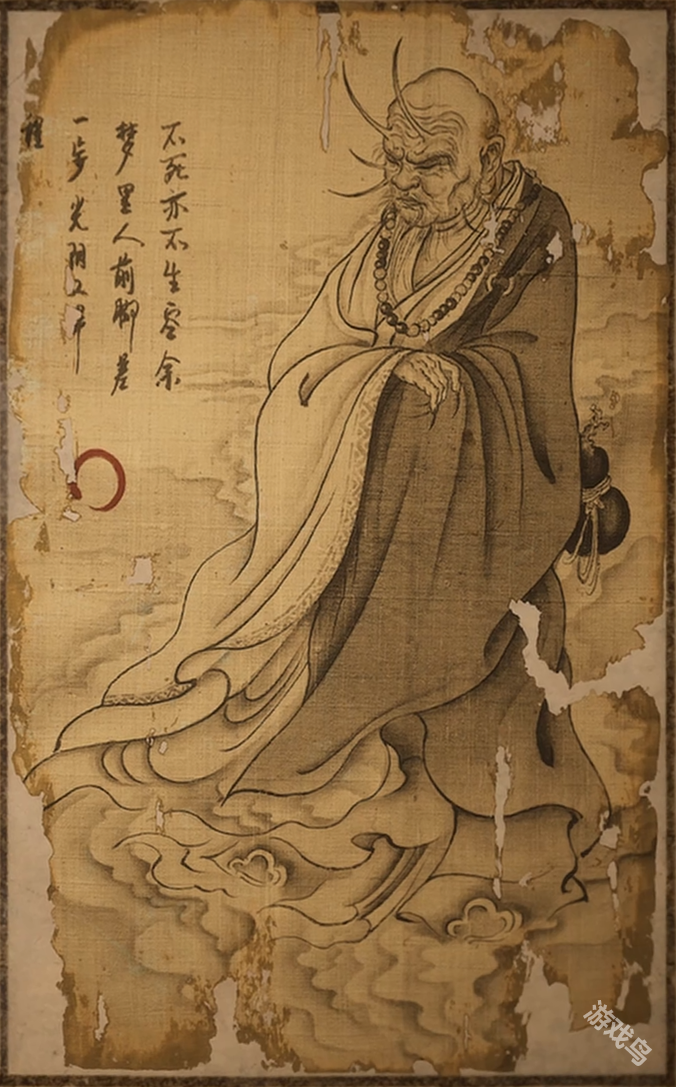 不死亦不生空余
梦里人前脚差
一步光阴五十
程
游戏鸟